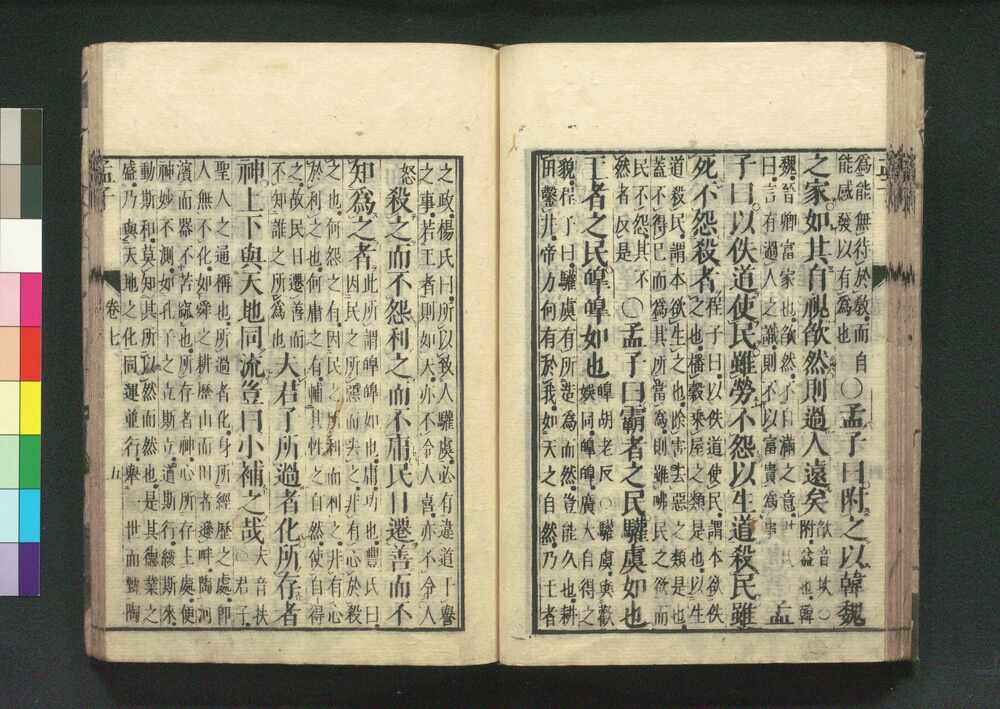 爲能無待於敎而自
能感發以有爲也〇孟子曰附之以韓魏
之家如其自視欿然則過人遠矣欿音坎〇附益也韓
魏晉卿富家也欿然不自滿之意尹氏
曰言有過人之識則不以富貴爲事孟
子曰以佚道使民雖勞不怨以生道殺民雖
死不怨殺者程子曰以佚道使民謂本欲佚
之也播穀乘屋之類是也以生
道殺民謂本欲生之也除害去惡之類是也
蓋不得已而爲其所當爲則雖咈民之欲而
民不怨其不
然者反是〇孟子曰霸者之民驩虞如也
王者之民皥皥如也皥胡老反〇驩虞與歡
娛同皥皥廣大自得之
貌程子曰驩虞有所造爲而然豈能久也耕
田鑿井帝力何有於我如天之自然乃王者
之政楊氏曰所以致人驩虞必有違道干譽
之事若王者則如天亦不令人喜亦不令人
怒殺之而不怨利之而不庸民日遷善而不
知爲之者此所謂皥皥如也庸功也豐氏曰
因民之所惡而去之非有心於殺
之也何怨之有因民之所利而利之非有心
於利之也何庸之有輔其性之自然使自得
之故民日遷善而
不知誰之所爲也夫君子所過者化所存者
神上下與天地同流豈曰小補之哉夫音扶
〇君子
聖人之通稱也所過者化身所經歷之處卽
人無不化如舜之耕歷山而田者遜畔陶河
濱而器不苦窳也所存者神心所存主處便
神妙不測如孔子之立斯立道斯行綏斯來
動斯和莫知其所以然而然也是其德業之
盛乃與天地之化同運並行擧一世而甄陶
孟子
卷七
五